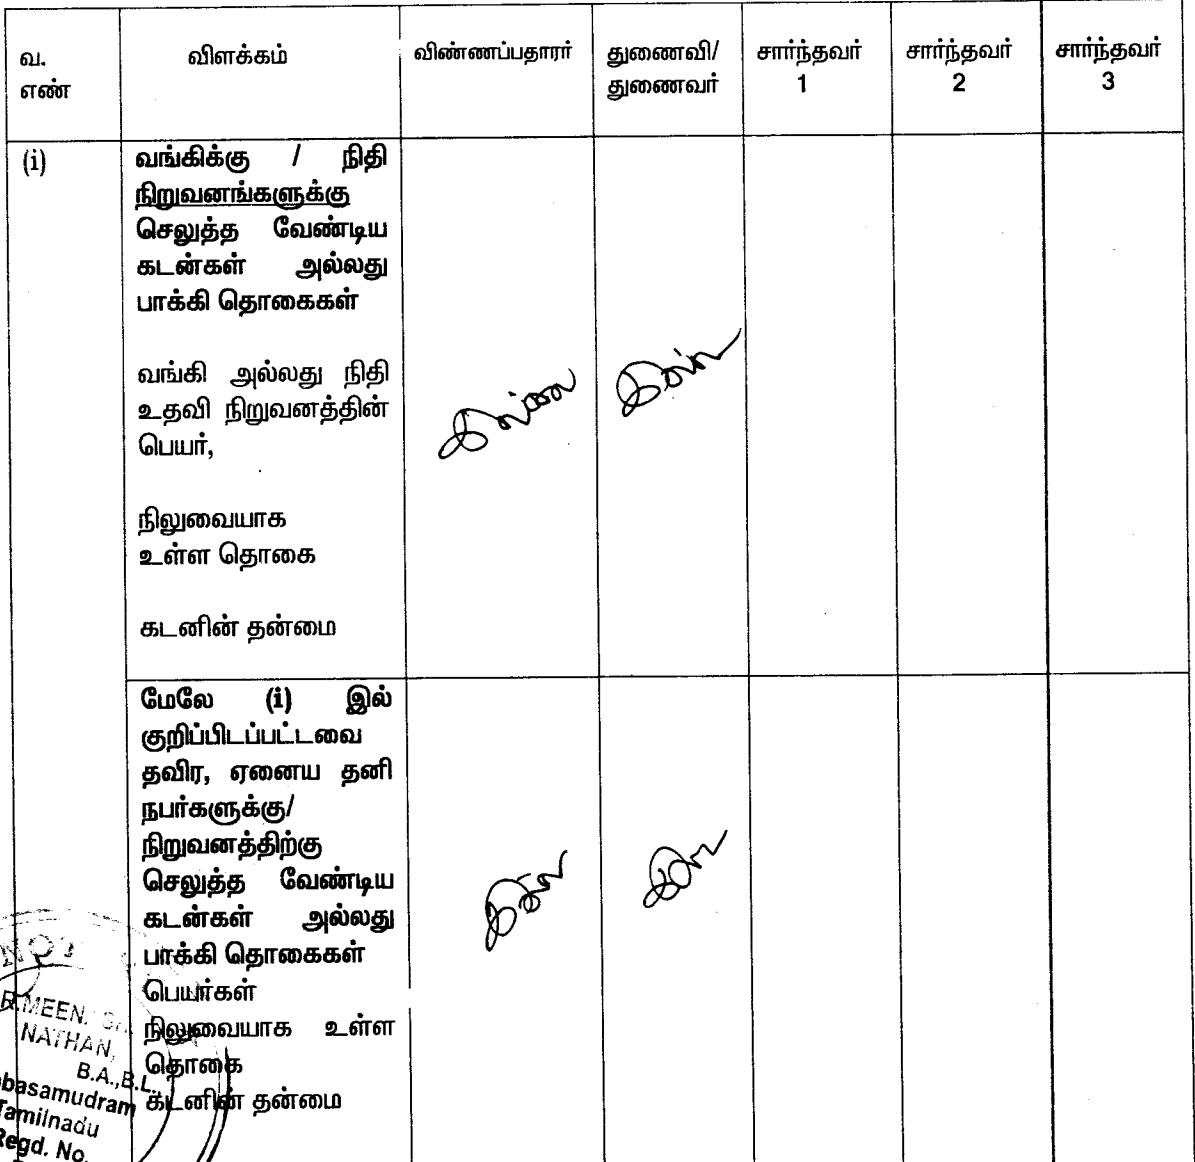 வ. எண் விளக்கம் விண்ணப்பதாரர் துணைவி/ துணைவர் சார்ந்தவர் 1 சார்ந்தவர் 2 சார்ந்தவர் 3
(i) வங்கிக்கு / நிதி
நிறுவனங்களுக்கு
செலுத்த வேண்டிய
கடன்கள் அல்லது
பாக்கி தொகைகள்
வங்கி அல்லது நிதி
உதவி நிறுவனத்தின்
பெயர்,
இல்லை இல்லை
நிலுவையாக
உள்ள தொகை
கடனின் தன்மை
மேலே (i) இல்
குறிப்பிடப்பட்டவை
தவிர, ஏனைய தனி
நபர்களுக்கு/
நிறுவனத்திற்கு
செலுத்த வேண்டிய
கடன்கள் அல்லது
பாக்கி தொகைகள்
இல்லை இல்லை
பெயர்கள்
நிலுவையாக உள்ள
தொகை
கடனின் தன்மை
NATHAN,
B.A.,B.L.,
basamudram
Tamilnadu
Regd. No.